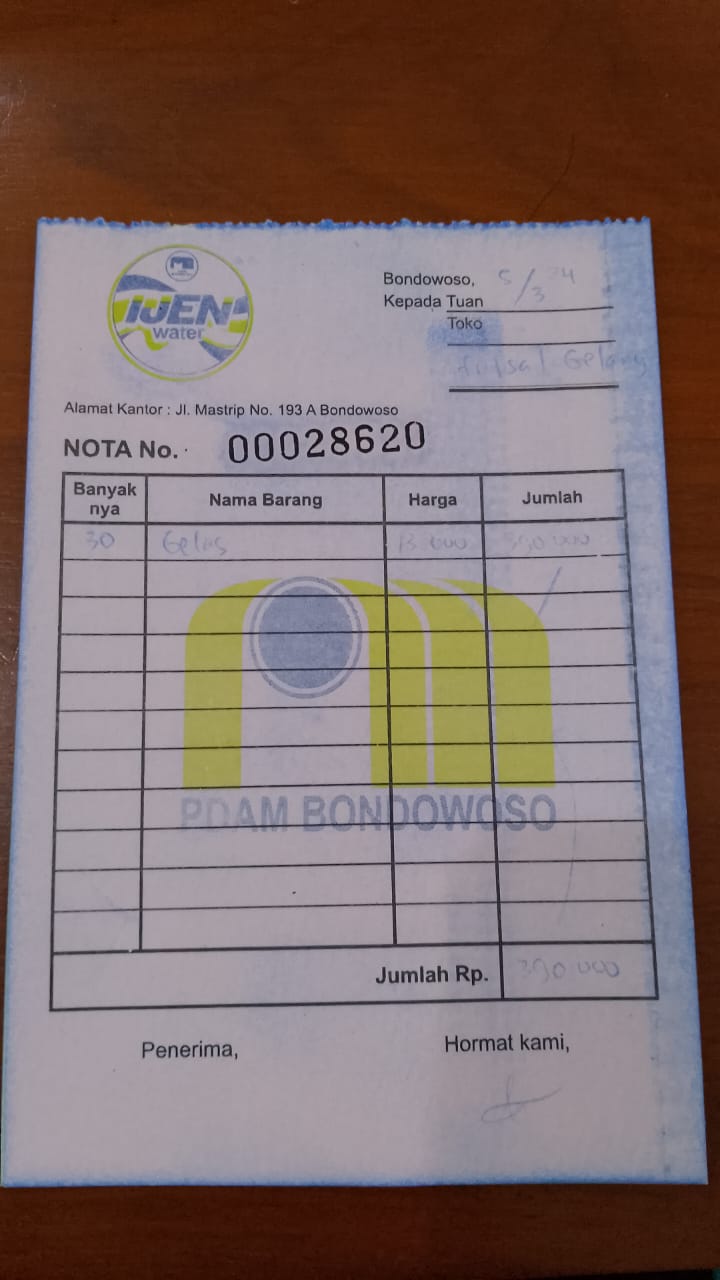 IJEN
water
Bondowoso, 5/3 24
Kepada Tuan
Toko
Futsal Gelang
Alamat Kantor : Jl. Mastrip No. 193 A Bondowoso
NOTA No. 00028620
Banyak nya Nama Barang Harga Jumlah
30 Gelas 13 000 390 000
PDAM BONDOWOSO
Jumlah Rp. 390 000
Penerima, Hormat kami,